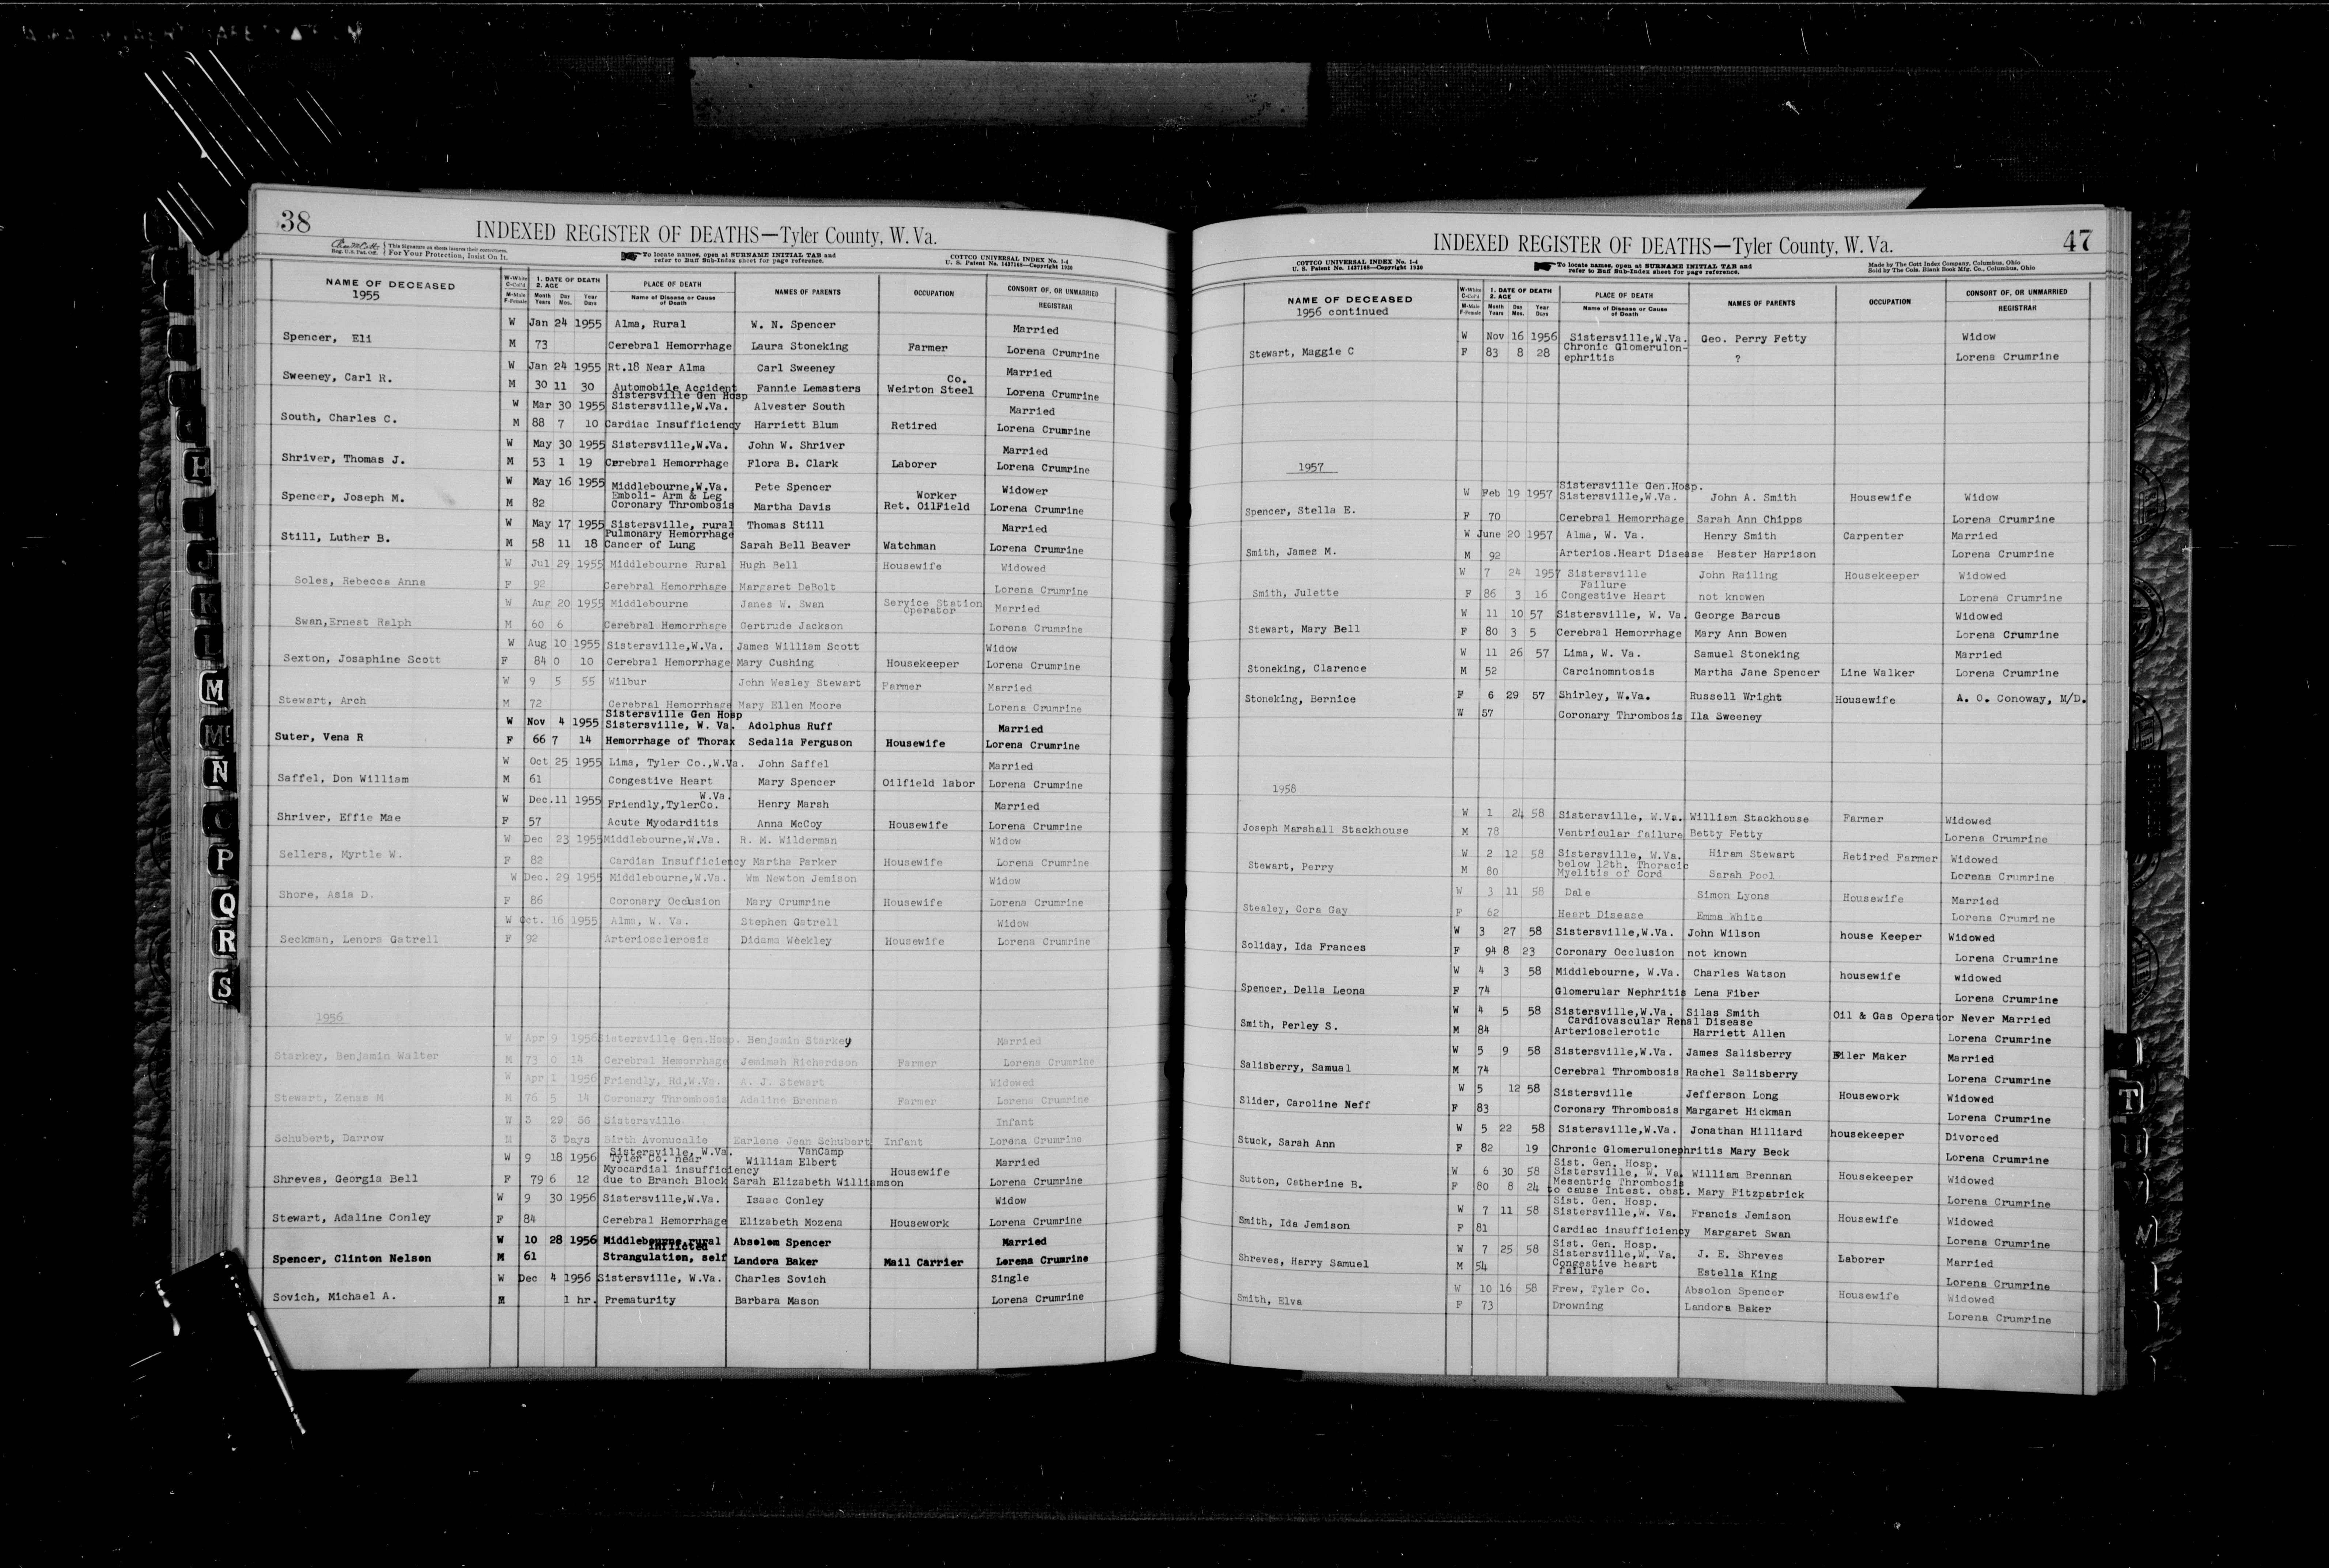 38
INDEXED REGISTER OF DEATHS—Tyler County, W. Va.
Reg. U.S. Pat. Off. This Signature on sheets insures their correctness. For Your Protection, Insist On It.
To locate names, open at SURNAME INITIAL TAB and
refer to Buff Sub-Index sheet for page reference.
COTTCO UNIVERSAL INDEX No. 1-4
U. S. Patent No. 1437168—Copyright 1930
NAME OF DECEASED W-White C-Col'd 1. DATE OF DEATH 2. AGE PLACE OF DEATH NAMES OF PARENTS OCCUPATION CONSORT OF, OR UNMARRIED
1955 M-Male F-Female Month Years Day Mos. Year Days Name of Disease or Cause of Death REGISTRAR
W Jan 24 1955 Alma, Rural W. N. Spencer Married
Spencer, Eli M 73 Cerebral Hemorrhage Laura Stoneking Farmer Lorena Crumrine
W Jan 24 1955 Rt.18 Near Alma Carl Sweeney Married
Sweeney, Carl R. M 30 11 30 Automobile Accident Fannie Lemasters Co. Weirton Steel Lorena Crumrine
Sistersville Gen Hosp
W Mar 30 1955 Sistersville,W.Va. Alvester South Married
South, Charles C. M 88 7 10 Cardiac Insufficiency Harriett Blum Retired Lorena Crumrine
W May 30 1955 Sistersville,W.Va. John W. Shriver Married
Shriver, Thomas J. M 53 1 19 Cerebral Hemorrhage Flora B. Clark Laborer Lorena Crumrine
W May 16 1955 Middlebourne,W.Va. Pete Spencer Widower
Emboli- Arm & Leg Worker
Spencer, Joseph M. M 82 Coronary Thrombosis Martha Davis Ret. OilField Lorena Crumrine
W May 17 1955 Sistersville, rural Thomas Still Married
Pulmonary Hemorrhage
Still, Luther B. M 58 11 18 Cancer of Lung Sarah Bell Beaver Watchman Lorena Crumrine
W Jul 29 1955 Middlebourne Rural Hugh Bell Housewife Widowed
Soles, Rebecca Anna F 92 Cerebral Hemorrhage Margaret DeBolt Lorena Crumrine
W Aug 20 1955 Middlebourne James W. Swan Service Station Operator Married
Swan,Ernest Ralph M 60 6 Cerebral Hemorrhage Gertrude Jackson Lorena Crumrine
W Aug 10 1955 Sistersville,W.Va. James William Scott Widow
Sexton, Josaphine Scott F 84 0 10 Cerebral Hemorrhage Mary Cushing Housekeeper Lorena Crumrine
W 9 5 55 Wilbur John Wesley Stewart Farmer Married
Stewart, Arch M 72 Cerebral Hemorrhage Mary Ellen Moore Lorena Crumrine
Sistersville Gen Hosp
W Nov 4 1955 Sistersville, W. Va. Adolphus Ruff Married
Suter, Vena R F 66 7 14 Hemorrhage of Thorax Sedalia Ferguson Housewife Lorena Crumrine
W Oct 25 1955 Lima, Tyler Co.,W.Va. John Saffel Married
Saffel, Don William M 61 Congestive Heart Mary Spencer Oilfield labor Lorena Crumrine
W Dec.11 1955 Friendly,TylerCo. W.Va. Henry Marsh Married
Shriver, Effie Mae F 57 Acute Myodarditis Anna McCoy Housewife Lorena Crumrine
W Dec 23 1955 Middlebourne,W.Va. R. M. Wilderman Widow
Sellers, Myrtle W. F 82 Cardian Insufficiency Martha Parker Housewife Lorena Crumrine
W Dec. 29 1955 Middlebourne,W.Va. Wm Newton Jemison Widow
Shore, Asia D. F 86 Coronary Occlusion Mary Crumrine Housewife Lorena Crumrine
W Oct. 16 1955 Alma, W. Va. Stephen Gatrell Widow
Seckman, Lenora Gatrell F 92 Arteriosclerosis Didama Weekley Housewife Lorena Crumrine
1956
W Apr 9 1956 Sistersville Gen.Hosp. Benjamin Starkey Married
Starkey, Benjamin Walter M 73 0 14 Cerebral Hemorrhage Jemimah Richardson Farmer Lorena Crumrine
W Apr 1 1956 Friendly, Rd,W.Va. A. J. Stewart Widowed
Stewart, Zenas M M 76 5 14 Coronary Thrombosis Adaline Brennan Farmer Lorena Crumrine
W 3 29 56 Sistersville Infant
Schubert, Darrow M 3 Days Birth Avonucalie Earlene Jean Schubert Infant Lorena Crumrine
Sistersville, W.Va. VanCamp
W 9 18 1956 Tyler Co. near William Elbert Married
Myocardial insufficiency Housewife
Shreves, Georgia Bell F 79 6 12 due to Branch Block Sarah Elizabeth Williamson Lorena Crumrine
W 9 30 1956 Sistersville,W.Va. Isaac Conley Widow
Stewart, Adaline Conley F 84 Cerebral Hemorrhage Elizabeth Mozena Housework Lorena Crumrine
W 10 28 1956 Middlebourne,rural Absolem Spencer Married
inflicted
Spencer, Clinton Nelson M 61 Strangulation, self Landora Baker Mail Carrier Lorena Crumrine
W Dec 4 1956 Sistersville, W.Va. Charles Sovich Single
Sovich, Michael A. M 1 hr. Prematurity Barbara Mason Lorena Crumrine
H
I
J
K
L
M
Mc
N
O
P
Q
R
S
47
INDEXED REGISTER OF DEATHS—Tyler County, W. Va.
COTTCO UNIVERSAL INDEX No. 1-4
U. S. Patent No. 1437168—Copyright 1930
To locate names, open at SURNAME INITIAL TAB and
refer to Buff Sub-Index sheet for page reference.
Made by The Cott Index Company, Columbus, Ohio
Sold by The Cols. Blank Book Mfg. Co., Columbus, Ohio
NAME OF DECEASED W-White C-Col'd 1. DATE OF DEATH 2. AGE PLACE OF DEATH NAMES OF PARENTS OCCUPATION CONSORT OF, OR UNMARRIED
1956 continued M-Male F-Female Month Years Day Mos. Year Days Name of Disease or Cause of Death REGISTRAR
W Nov 16 1956 Sistersville,W.Va. Geo. Perry Fetty Widow
Chronic Glomerulon-
Stewart, Maggie C F 83 8 28 ephritis ? Lorena Crumrine
1957
Sistersville Gen.Hosp.
W Feb 19 1957 Sistersville,W.Va. John A. Smith Housewife Widow
Spencer, Stella E. F 70 Cerebral Hemorrhage Sarah Ann Chipps Lorena Crumrine
W June 20 1957 Alma, W. Va. Henry Smith Carpenter Married
Smith, James M. M 92 Arterios.Heart Disease Hester Harrison Lorena Crumrine
W 7 24 1957 Sistersville John Railing Housekeeper Widowed
Failure
Smith, Julette F 86 3 16 Congestive Heart not knowen Lorena Crumrine
W 11 10 57 Sistersville, W. Va. George Barcus Widowed
Stewart, Mary Bell F 80 3 5 Cerebral Hemorrhage Mary Ann Bowen Lorena Crumrine
W 11 26 57 Lima, W. Va. Samuel Stoneking Married
Stoneking, Clarence M 52 Carcinomntosis Martha Jane Spencer Line Walker Lorena Crumrine
Stoneking, Bernice F 6 29 57 Shirley, W.Va. Russell Wright Housewife A. O. Conoway, M/D.
W 57 Coronary Thrombosis Ila Sweeney
1958
W 1 24 58 Sistersville, W.Va. William Stackhouse Farmer Widowed
Joseph Marshall Stackhouse M 78 Ventricular failure Betty Fetty Lorena Crumrine
W 2 12 58 Sistersville, W.Va. Hiram Stewart Retired Farmer Widowed
below 12th. Thoracic
Stewart, Perry M 80 Myelitis of Cord Sarah Pool Lorena Crumrine
W 3 11 58 Dale Simon Lyons Housewife Married
Stealey, Cora Gay F 62 Heart Disease Emma White Lorena Crumrine
W 3 27 58 Sistersville,W.Va. John Wilson house Keeper Widowed
Soliday, Ida Frances F 94 8 23 Coronary Occlusion not known Lorena Crumrine
W 4 3 58 Middlebourne, W.Va. Charles Watson housewife widowed
Spencer, Della Leona F 74 Glomerular Nephritis Lena Fiber Lorena Crumrine
W 4 5 58 Sistersville,W.Va. Silas Smith Oil & Gas Operator Never Married
Cardiovascular Renal Disease
Smith, Perley S. M 84 Arteriosclerotic Harriett Allen Lorena Crumrine
W 5 9 58 Sistersville,W.Va. James Salisberry Married
Salisberry, Samual M 74 Cerebral Thrombosis Rachel Salisberry Lorena Crumrine
W 5 12 58 Sistersville Jefferson Long Housework Widowed
Slider, Caroline Neff F 83 Coronary Thrombosis Margaret Hickman Lorena Crumrine
W 5 22 58 Sistersville,W.Va. Jonathan Hilliard housekeeper Divorced
Stuck, Sarah Ann F 82 19 Chronic Glomerulonephritis Mary Beck Lorena Crumrine
Sist. Gen. Hosp.
W 6 30 58 Sistersville, W. Va. William Brennan Housekeeper Widowed
Mesentric Thrombosis
Sutton, Catherine B. F 80 8 24 to cause Intest. obst. Mary Fitzpatrick Lorena Crumrine
Sist. Gen. Hosp.
W 7 11 58 Sistersville,W. Va. Francis Jemison Housewife Widowed
Smith, Ida Jemison F 81 Cardiac insufficiency Margaret Swan Lorena Crumrine
Sist. Gen. Hosp.
W 7 25 58 Sistersville,W. Va. J. E. Shreves Laborer Married
Shreves, Harry Samuel M 54 Congestive heart failure Estella King Lorena Crumrine
W 10 16 58 Frew, Tyler Co. Absolon Spencer Housewife Widowed
Smith, Elva F 73 Drowning Landora Baker Lorena Crumrine
T